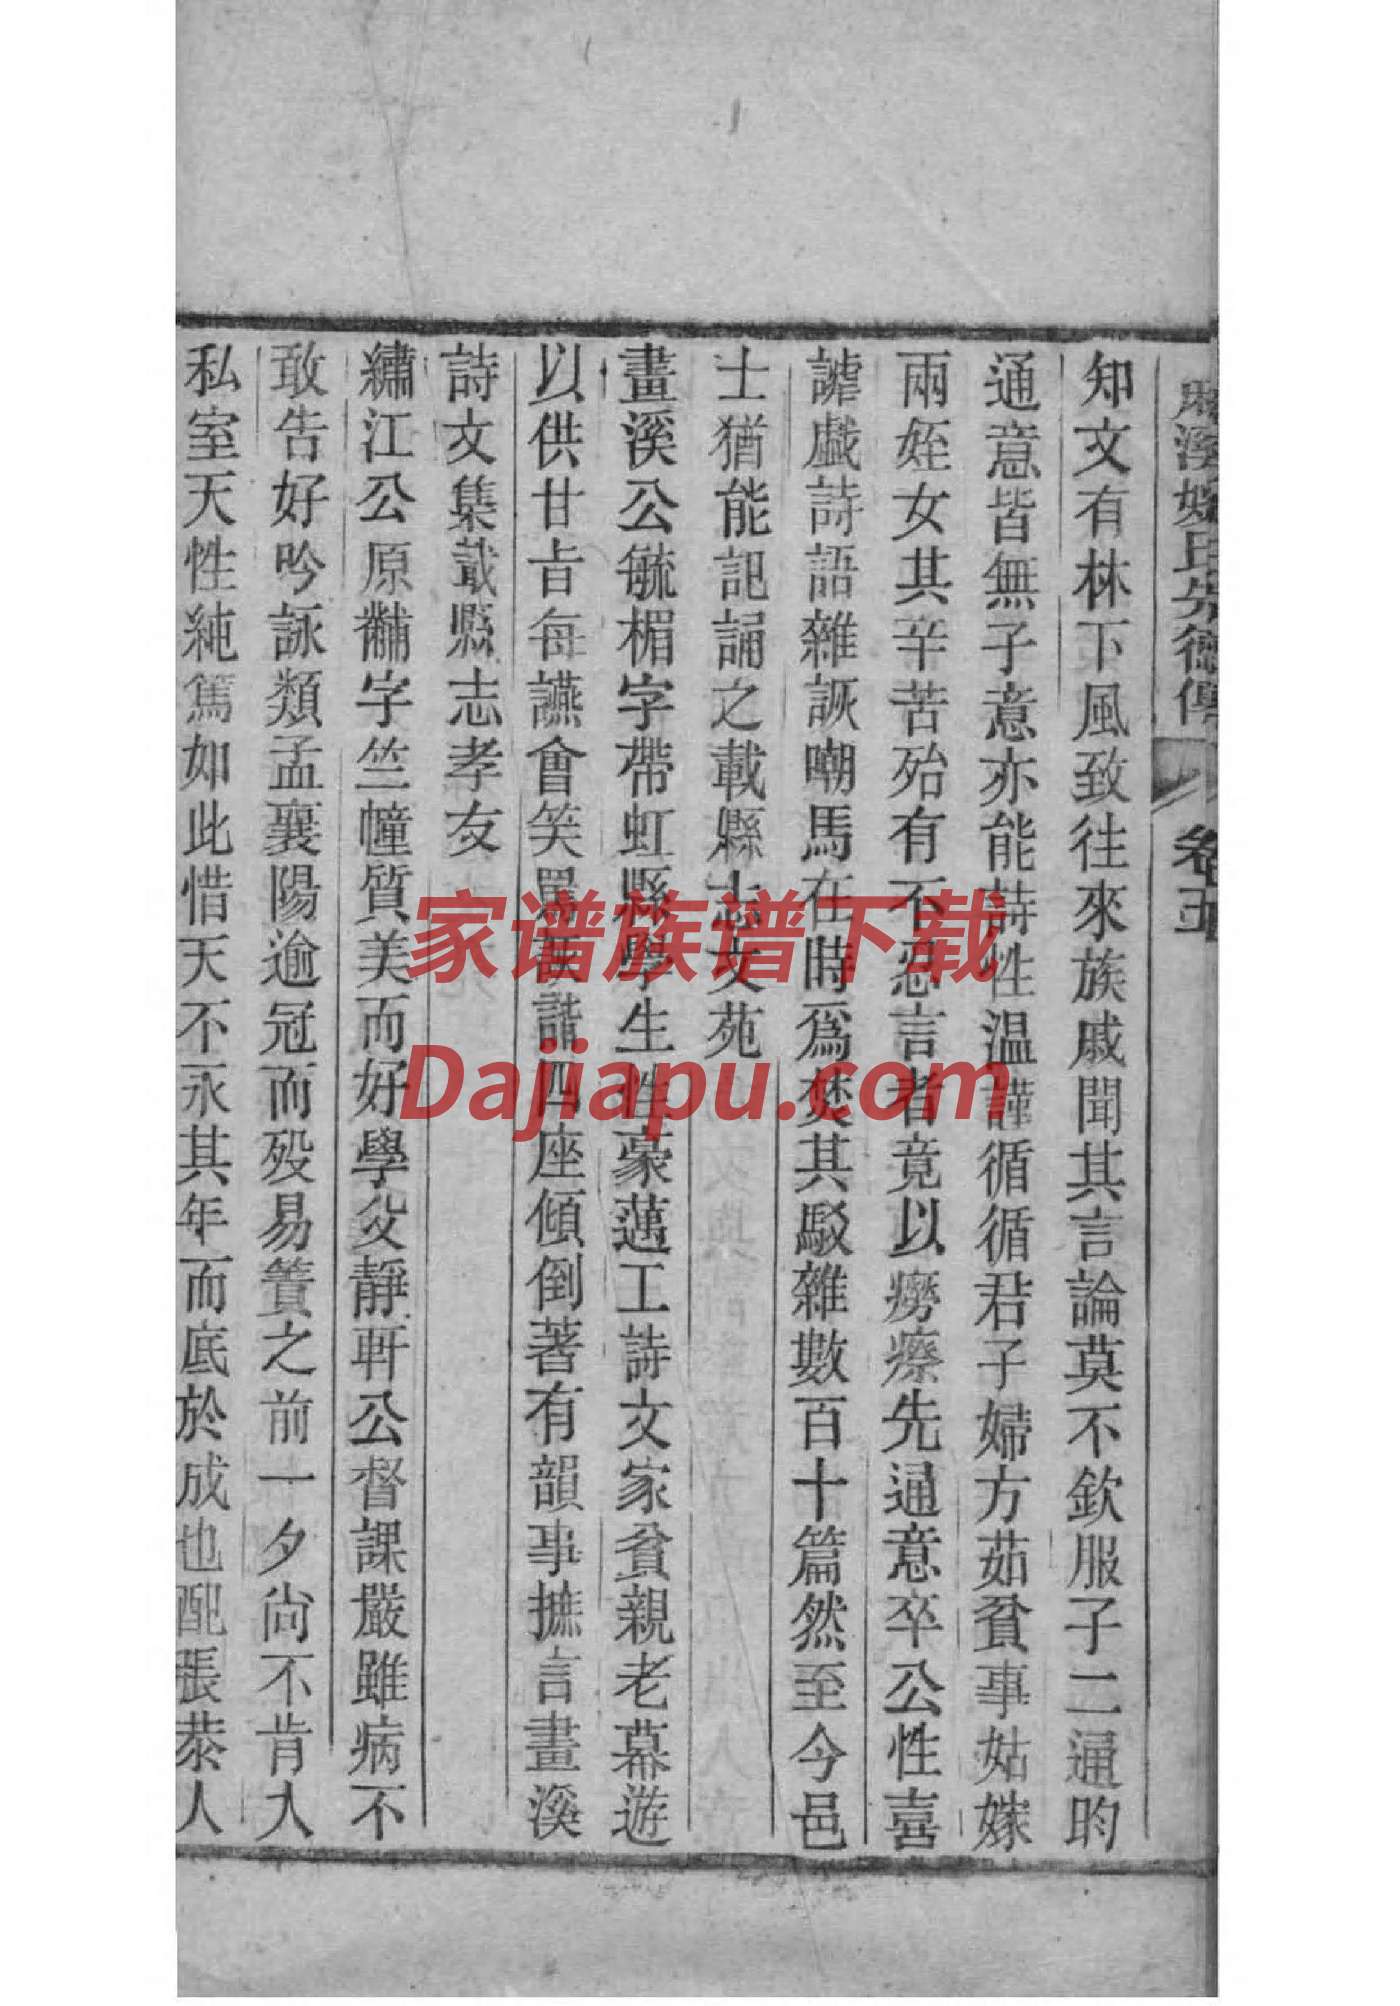 麻溪姚氏先德傳 卷五
知文有林下風致往來族戚聞其言論莫不欽服子二通昀
通意皆無子意亦能詩性温謹循循君子婦方茹貧事姑嫁
兩姪女其辛苦殆有不忍言者竟以癆瘵先通意卒公性喜
謔戲詩語雜詼嘲馬在時爲焚其駁雜數百十篇然至今邑
士猶能記誦之載縣志文苑
畫溪公毓楣字帶虹縣學生性豪邁工詩文家貧親老幕遊
以供甘旨每讌會笑罵詼諧四座傾倒著有韻事摭言畫溪
詩文集載縣志孝友
繡江公原黼字竺幢質美而好學父靜軒公督課嚴雖病不
敢告好吟詠類孟襄陽逾冠而歿易簀之前一夕尚不肯入
私室天性純篤如此惜天不永其年而底於成也配張恭人
家谱族谱下载
Dajiapu.com